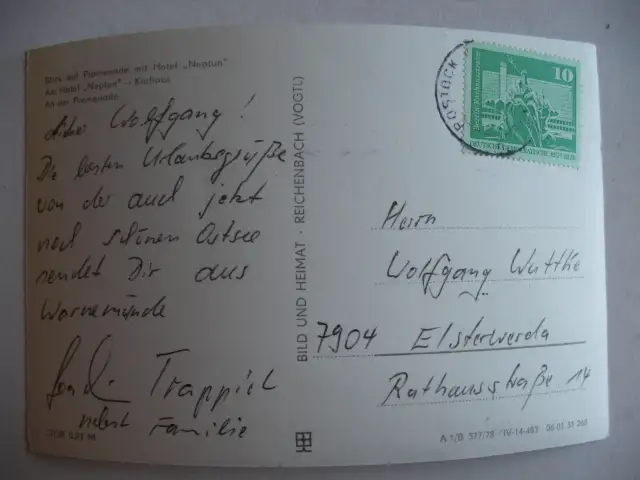 Blick auf Promenade mit Hotel „Neptun"
Am Hotel „Neptun" – Kurhaus
An der Promenade
Lieber Wolfgang!
Die besten Urlaubsgrüße
von der auch jetzt
noch schönen Ostsee
sendet Dir aus
Warnemünde
Trappiel
nebst Familie
BILD UND HEIMAT · REICHENBACH (VOGTL)
ROSTOCK
10
DEUTSCHE DEMOKRATISCHE REPUBLIK
Herrn
Wolfgang Wuttke
7904 Elsterwerda
Rathausstraße 14
A 1/B 577/78 IV-14-483 06 01 31 360